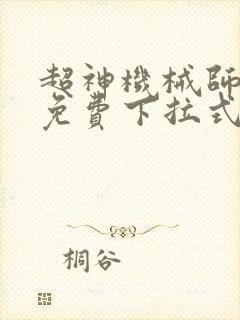 超神機械師
免費下拉式
桐谷